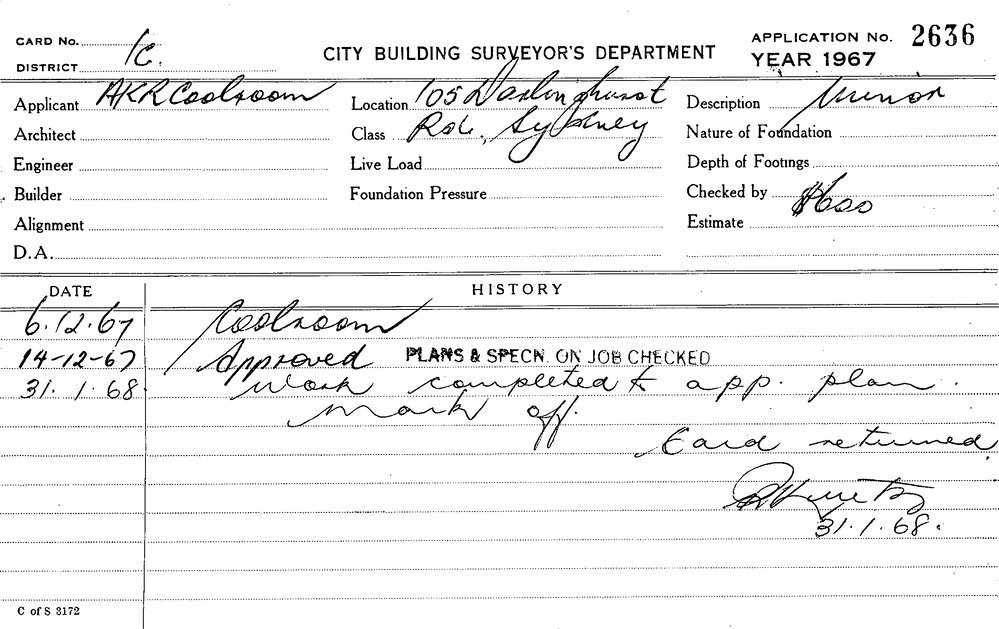 CARD No. 1C.
DISTRICT
CITY BUILDING SURVEYOR'S DEPARTMENT
APPLICATION No. 2636
YEAR 1967
Applicant AKR Coolroom
Location 105 Darlinghurst
Description Minor
Architect
Class Rd., Sydney
Nature of Foundation
Engineer
Live Load
Depth of Footings
Builder
Foundation Pressure
Checked by
Alignment
Estimate $600
D.A.
DATE
HISTORY
6.12.67 Coolroom
14-12-67 Approved PLANS & SPECN. ON JOB CHECKED
31.1.68 Work completed to app. plan.
Mark off.
Card returned.
31.1.68.
C of S 3172